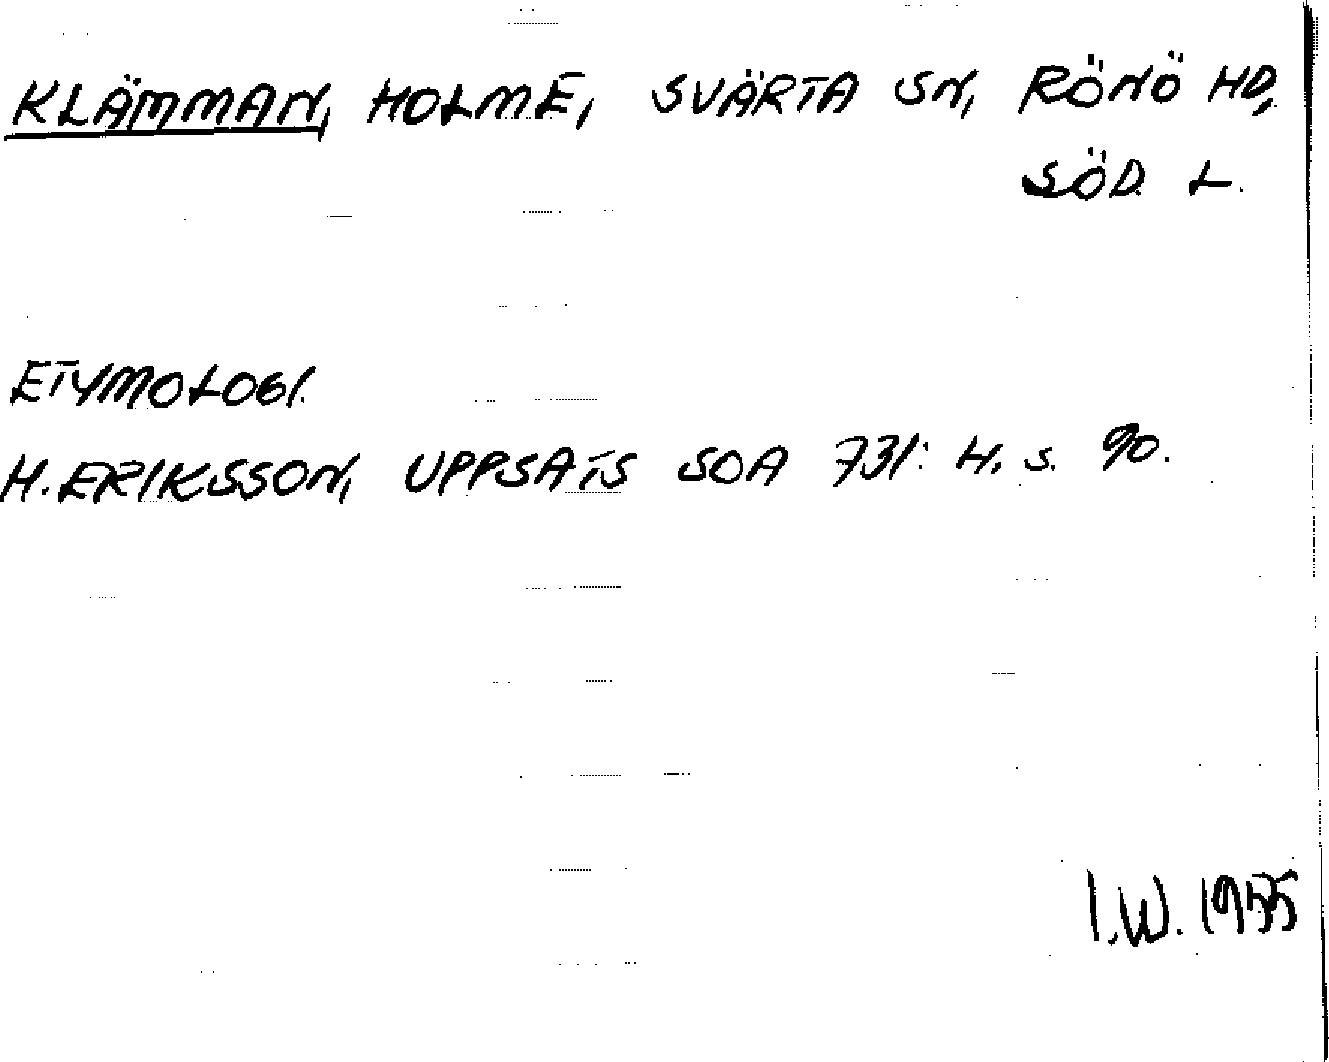 KLÄMMAN, HOLME, SVÄRTA SN, RÖNÖ HD,
SÖD. L.
ETYMOLOGI.
H. ERIKSSON, UPPSATS SOA 731: H. s. 90.
I.W. 1955